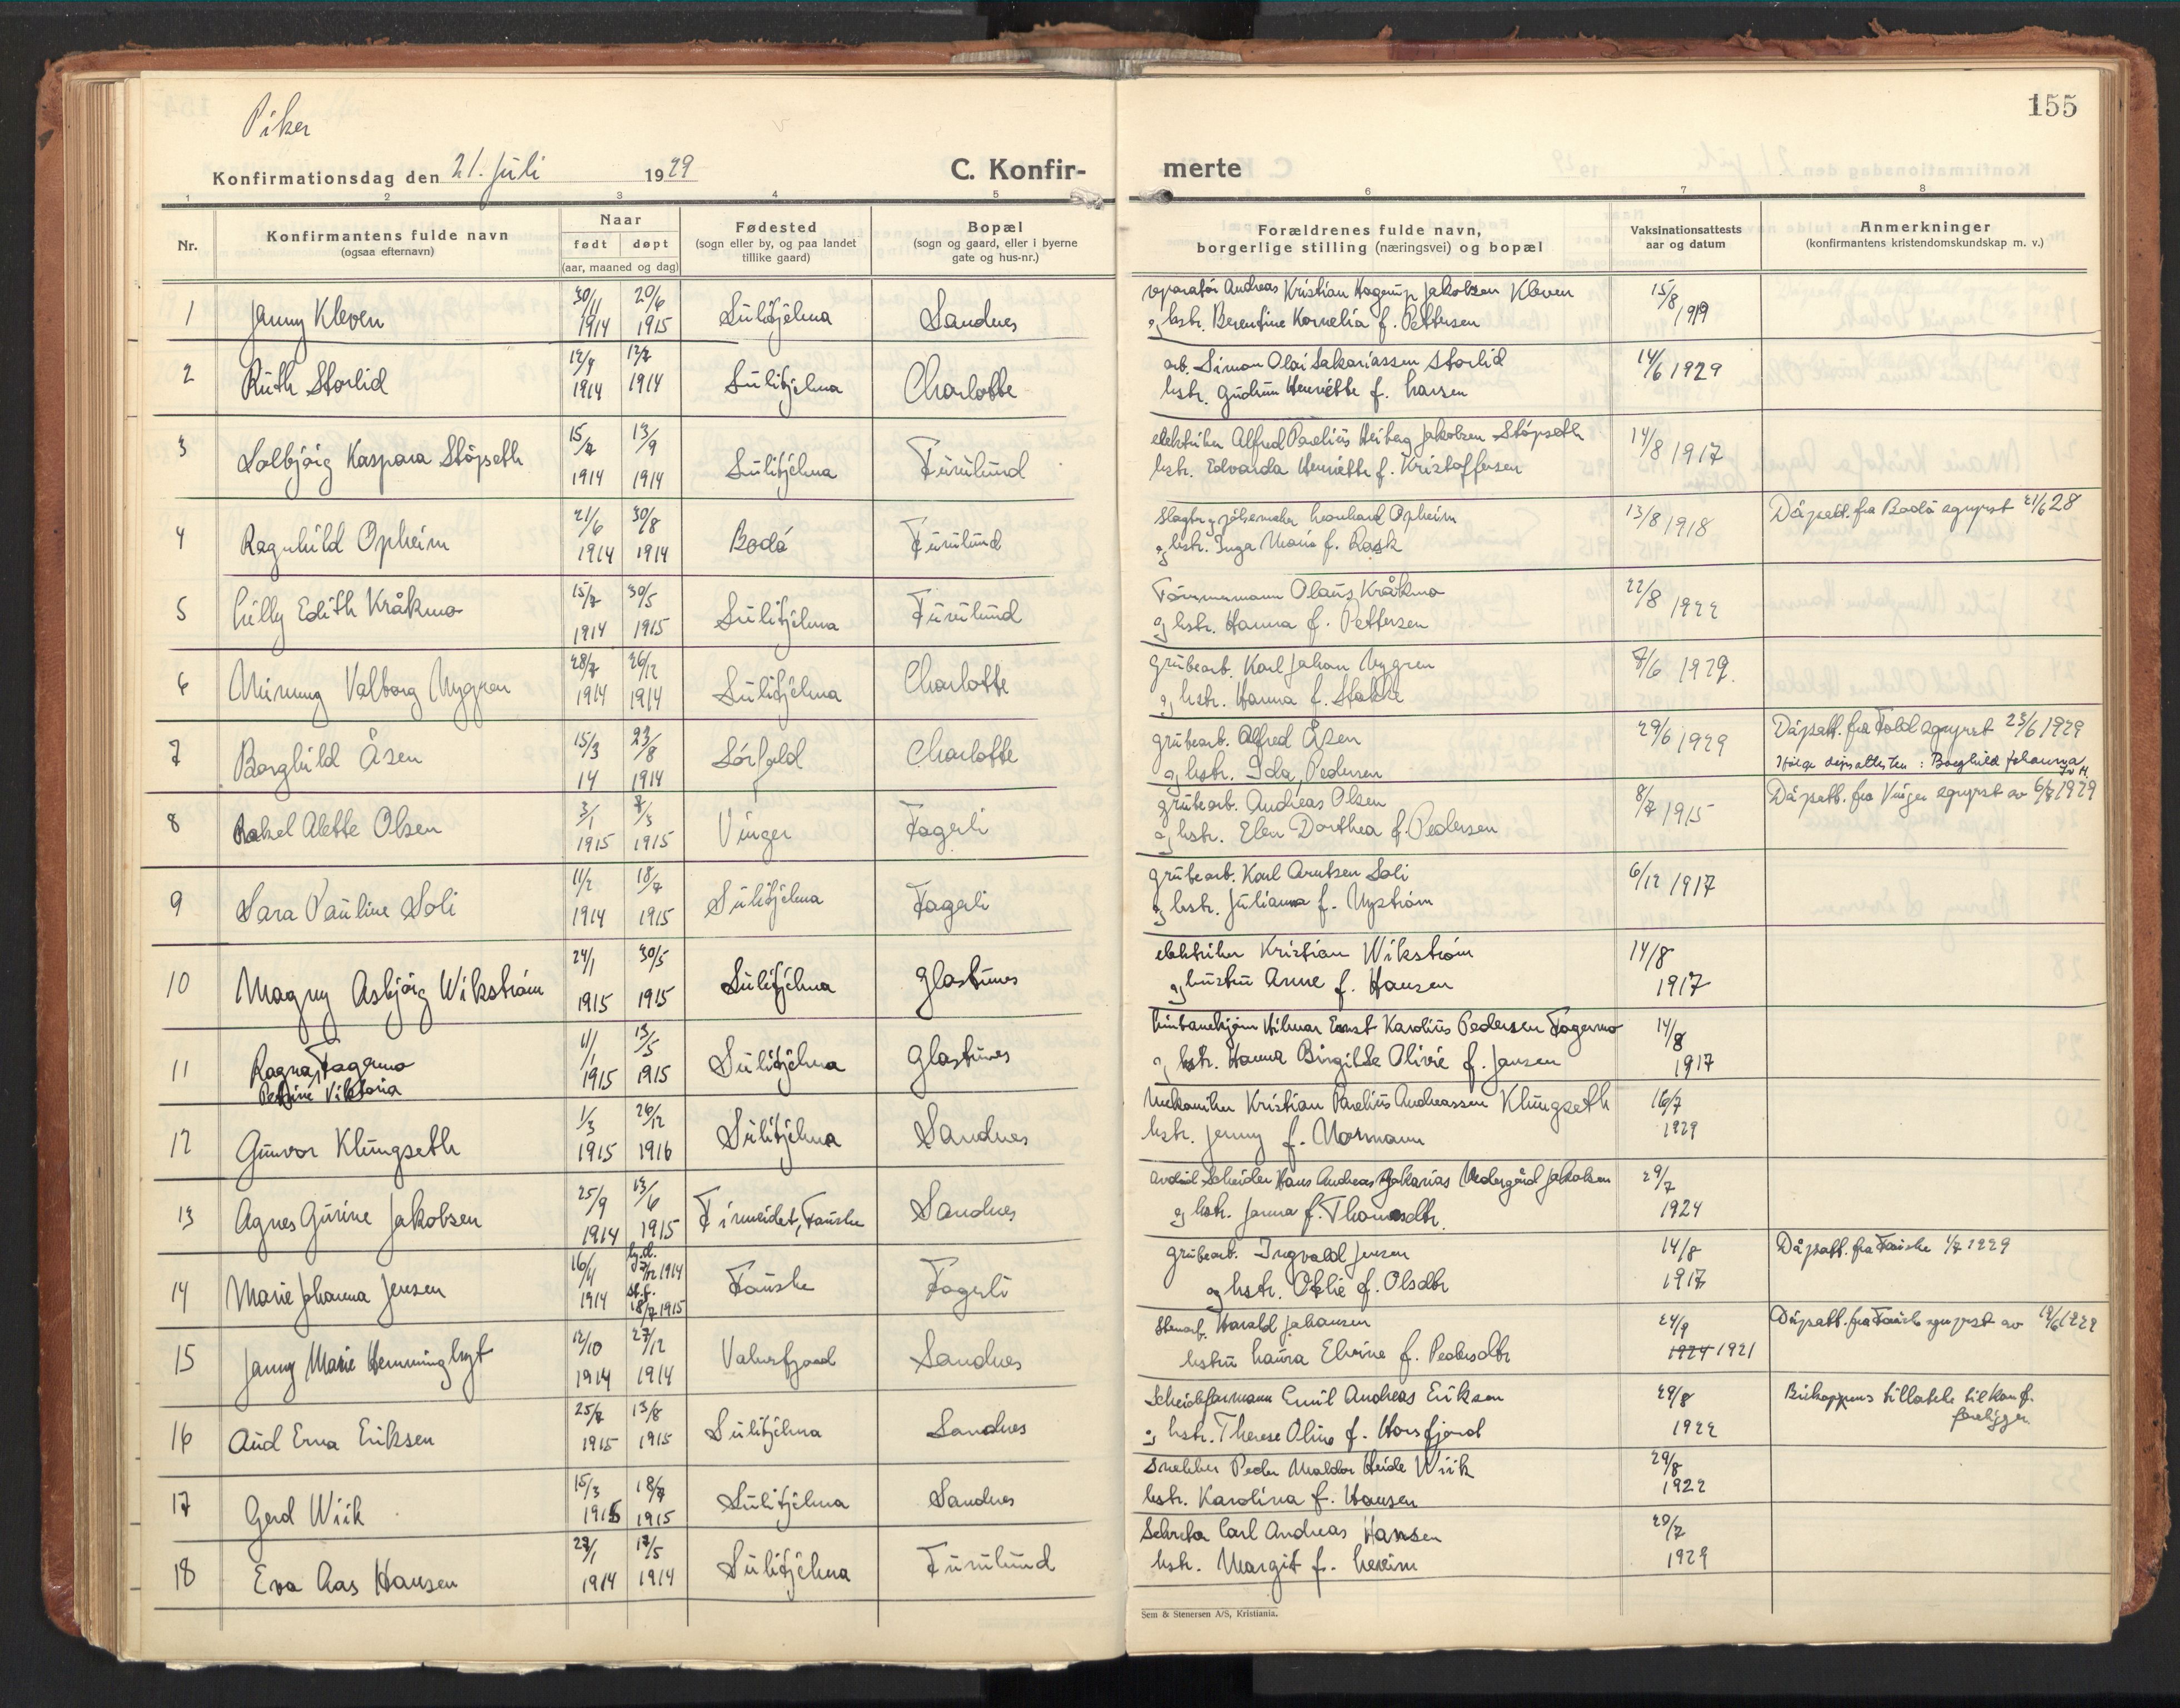 155
Piker
Konfirmationsdag den 21. juli 1929
C. Konfir-
merte
1 2 3 4 5 6 7 8
Nr.
Konfirmantens fulde navn
(ogsaa efternavn)
Naar
født døpt
(aar, maaned og dag)
Fødested
(sogn eller by, og paa landet
tillike gaard)
Bopæl
(sogn og gaard, eller i byerne
gate og hus-nr.)
Forældrenes fulde navn,
borgerlige stilling (næringsvei) og bopæl
Vaksinationsattests
aar og datum
Anmerkninger
(konfirmantens kristendomskundskap m. v.)
1 Jenny Kleven 30/11 1914 20/6 1915 Sulitjelma Sandnes reparatør Andreas Kristian Hagerup Jakobsen Kleven
og hstr. Berentine Kornelia f. Pettersen 15/8 1919
2 Ruth Storlid 1914 1914 Sulitjelma Charlotte arb. Simon Olai Sakariassen Storlid
hstr. Gudrun Henriette f. Larsen 14/6 1929
3 Solbjørg Kaspara Støpseth 15/7 1914 13/9 1914 Sulitjelma Furulund elektriker Alfred Parelius Heiberg Jakobsen Støpseth
hstr. Edvarda Henriette f. Kristoffersen 14/8 1917
4 Ragnhild Opheim 21/6 1914 30/8 1914 Bodø Furulund Slagter og pølsemaker Leonhard Opheim
og hstr. Inga Marie f. Rask 13/8 1918 Dåpsatt. fra Bodø sgnprst 21/6 28
5 Lilly Edith Kråkmo 15/7 1914 30/5 1915 Sulitjelma Furulund Tømmermann Olaus Kråkmo
og hstr. Hanna f. Pettersen 22/8 1922
6 Mimmy Valborg Nygren 28/7 1914 26/12 1914 Sulitjelma Charlotte Grubearb. Karl Johan Nygren
og hstr. Hanna f. Stokke 7/6 1929.
7 Borghild Åsen 15/3 14 23/8 1914 Sørfold Charlotte grubearb. Alfred Åsen
og hstr. Ida, Pedersen 29/6 1929 Dåpsatt. fra Fold sgnprst 23/6 1929
Ifølge dåpsattesten: Borghild Johanna
8 Rakel Alette Olsen 3/1 1915 7/3 1915 Vinger Fagerli grubearb. Andreas Olsen
og hstr. Elen Dorthea f. Pedersen 8/7 1915 Dåpsatt. fra Vinger sgnprst av 6/7 1929
9 Sara Pauline Soli 11/2 1914 18/7 1915 Sulitjelma Fagerli grubearb. Karl Arntsen Soli
og hstr. Julianna f. Nystrøm 6/12 1917
10 Magny Asbjørg Wikstrøm 24/1 1915 30/5 1915 Sulitjelma Glastunes elektriker Kristian Wikstrøm
og hustru Anne f. Hansen 14/8 1917
11 Ragna, Fagermo
Petrine Viktoria 11/1 1915 13/5 1915 Sulitjelma Glastunes Hilmar Ernst Karolius Pedersen Fagermo
og hstr. Hanna Birgitte Olivie f. Jansen 14/8 1917
12 Gunvor Klungseth 1/3 1915 26/12 1916 Sulitjelma Sandnes Mekaniker Kristian Parelius Andreassen Klungseth
hstr. Jenny f. Normann 16/7 1929
13 Agnes Gurine Jakobsen 25/9 1914 13/6 1915 Finneidet, Fauske Sandnes Hans Andreas Zakarias Vedergård Jakobsen
og hstr. Janna f. Thomasdtr. 29/7 1924
14 Marie Johanna Jensen 16/11 1914 hj.d. 27/12 1914 st.f. 18/7 1915 Fauske Fagerli grubearb. Ingvald Jensen
og hstr. Otelie f. Olsdtr 14/8 1917 Dåpsatt. fra Fauske 1/7 1929
15 Jenny Marie Hemminghyt 12/10 1914 27/12 1914 Valnesfjord Sandnes Stenarb. Harald Johansen
hstru Laura Elvine f. Pedersdtr 24/9 1924 1921 Dåpsatt. fra Fauske sgnprst av 19/6 1929
16 Aud Erna Eriksen 25/7 1915 13/8 1915 Sulitjelma Sandnes Scheideformann Emil Andreas Eriksen
og hstr. Therese Oline f. Horsfjord 29/8 1922 Biskoppens tillatelse til konf.
foreligger
17 Gerd Wiik 15/3 1915 18/7 1915 Sulitjelma Sandnes Snekker Peder Meldor Heide Wiik
hstr. Karolina f. Hansen 29/8 1922
18 Eva Aas Hansen 27/1 1914 17/5 1914 Sulitjelma Furulund Carl Andreas Hansen
hstr. Margit f. 20/7 1929
Sem & Stenersen A/S, Kristiania.